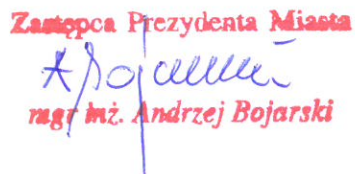 Zastępca Prezydenta Miasta
A Bojarski
mgr inż. Andrzej Bojarski